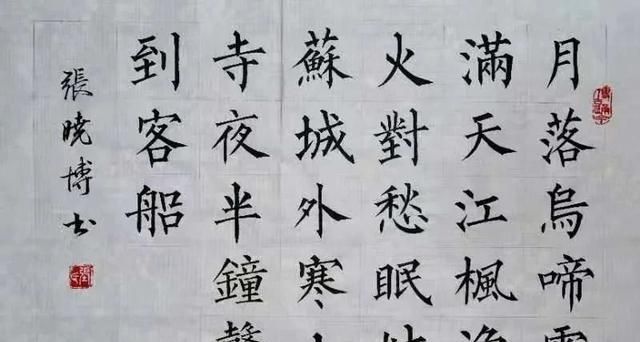 月落烏啼
滿天江楓
火對愁眠
蘇城外寒
寺夜半鐘聲
到客船
張晓博书